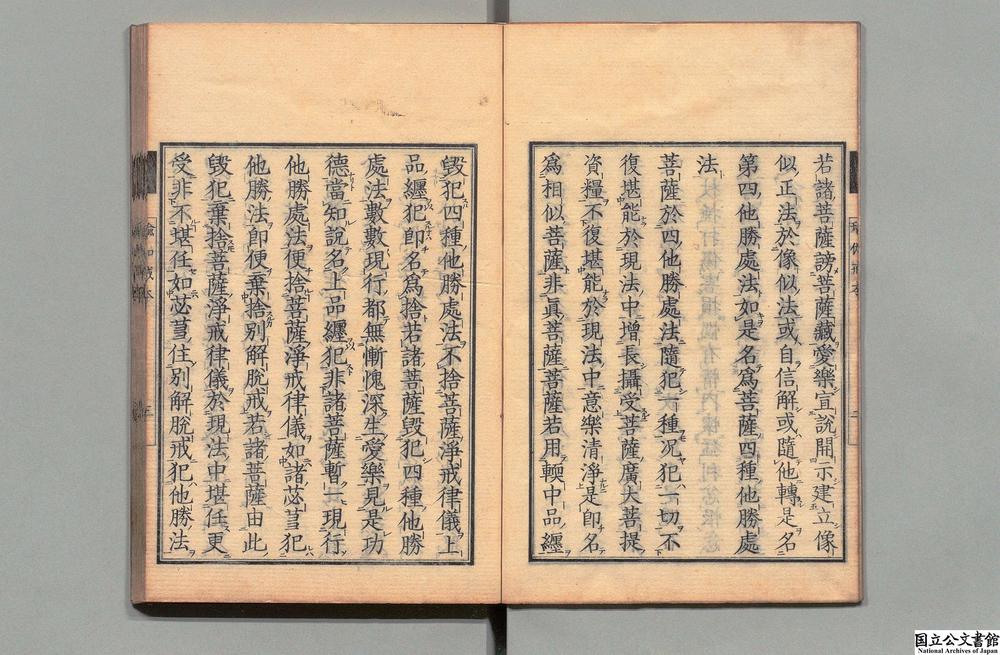 若諸菩薩謗菩薩藏愛樂宣說開示建立像
似正法於像似法或自信解或隨他轉是名
第四他勝處法如是名爲菩薩四種他勝處
法
菩薩於四他勝處法隨犯一種況犯一切不
復堪能於現法中增長攝受菩薩廣大菩提
資糧不復堪能於現法中意樂清淨是卽名
爲相似菩薩非眞菩薩菩薩若用輭中品纏
毀犯四種他勝處法不捨菩薩淨戒律儀上
品纏犯卽名爲捨若諸菩薩毀犯四種他勝
處法數數現行都無慚愧深生愛樂見是功
德當知說名上品纏犯非諸菩薩暫一現行
他勝處法便捨菩薩淨戒律儀如諸苾芻犯
他勝法卽便棄捨別解脫戒若諸菩薩由此
毀犯棄捨菩薩淨戒律儀於現法中堪任更
受非不堪任如苾芻住別解脫戒犯他勝法
国立公文書館
National Archives of Japan